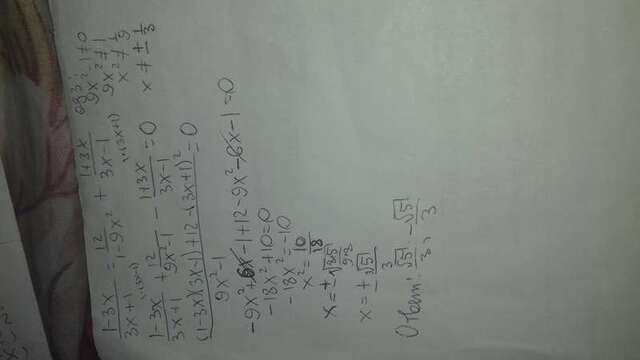 (1-3x)/(3x+1) = 12/(1-9x²) + (1+3x)/(3x-1)
ОДЗ:
9x²-1≠0
9x²≠1
x²≠1/9
x≠±1/3
(1-3x)/(3x+1) + 12/(9x²-1) - (1+3x)/(3x-1) = 0
((1-3x)(3x-1)+12-(3x+1)²)/(9x²-1) = 0
-9x²+6x-1+12-9x²-6x-1=0
-18x²+10=0
-18x²=-10
x²=10/18
x=±√
x=±√5/3
Ответ: √5/3; -√5/3